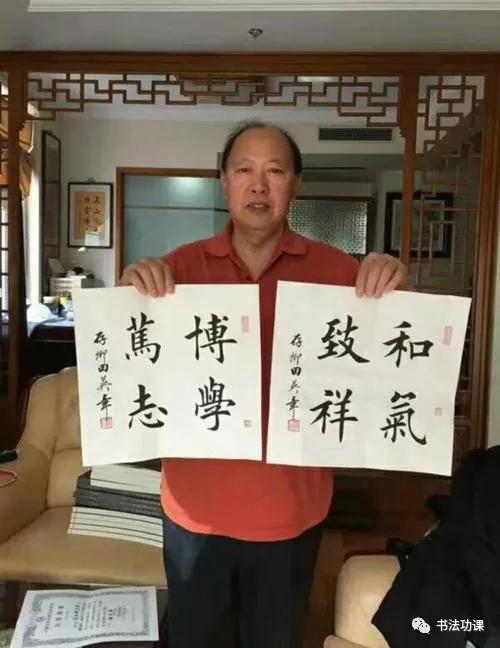 博學
篤志
存卿田英章
和氣
致祥
存卿田英章
书法功课